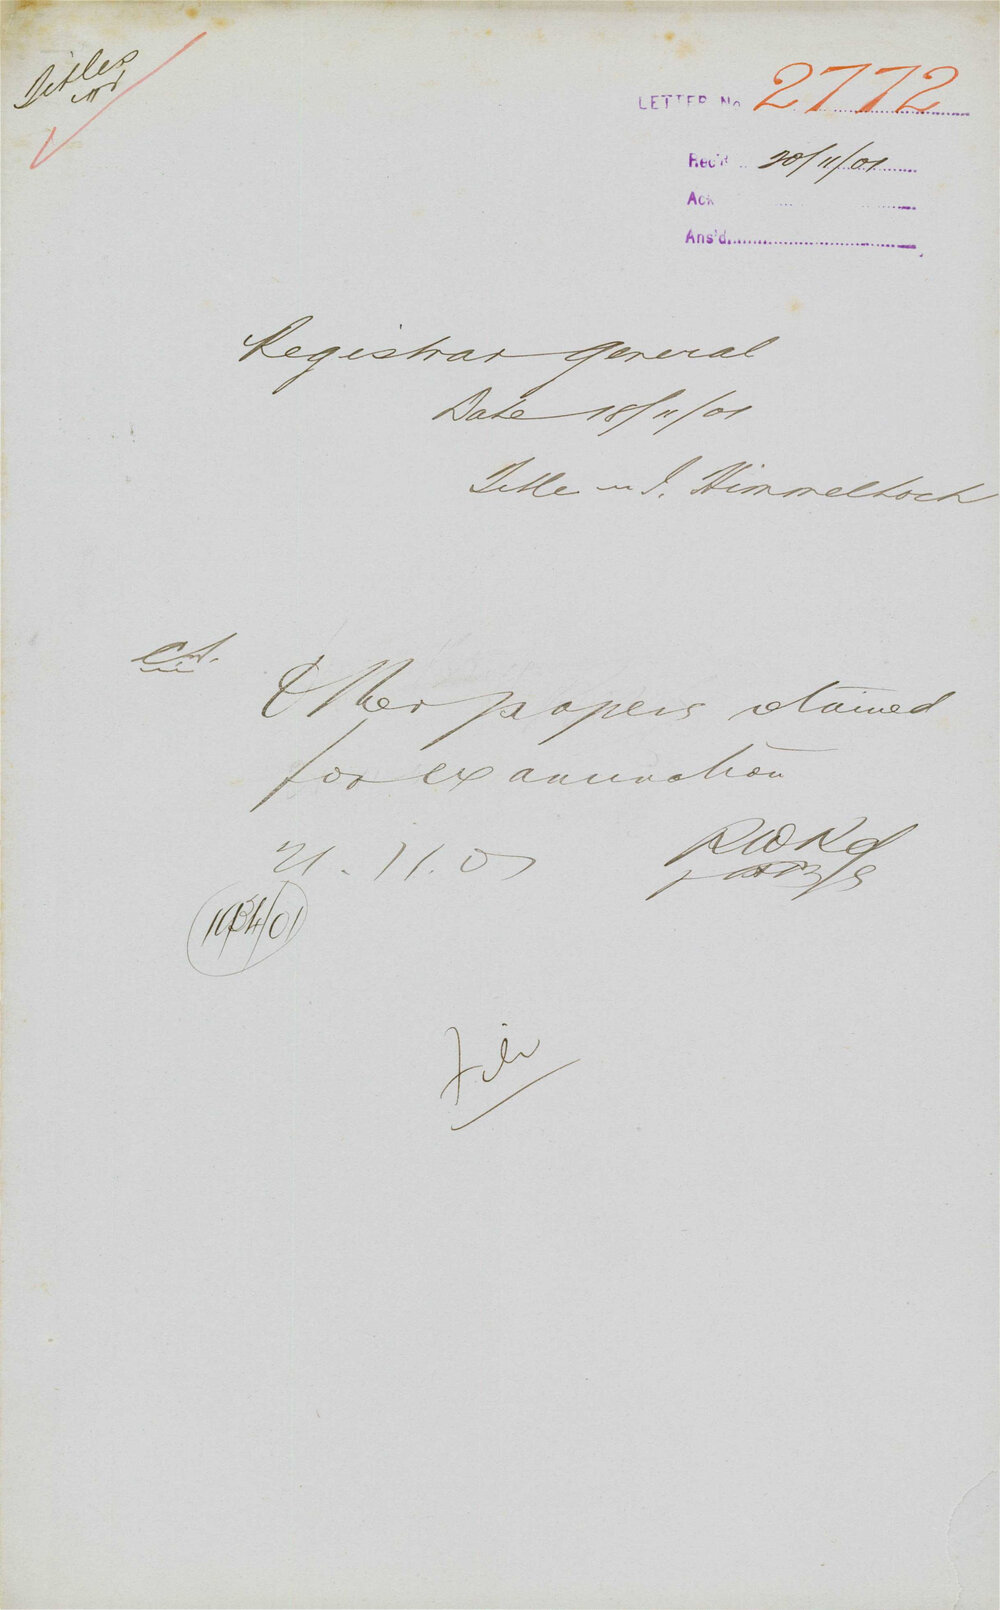 Titles
LETTER No 2772
Rec'd 20/11/01
Ack
Ans'd
Registrar General
Date 18/11/01
Title J. Himmelhoch
Other papers retained
for examination
21.11.01
File